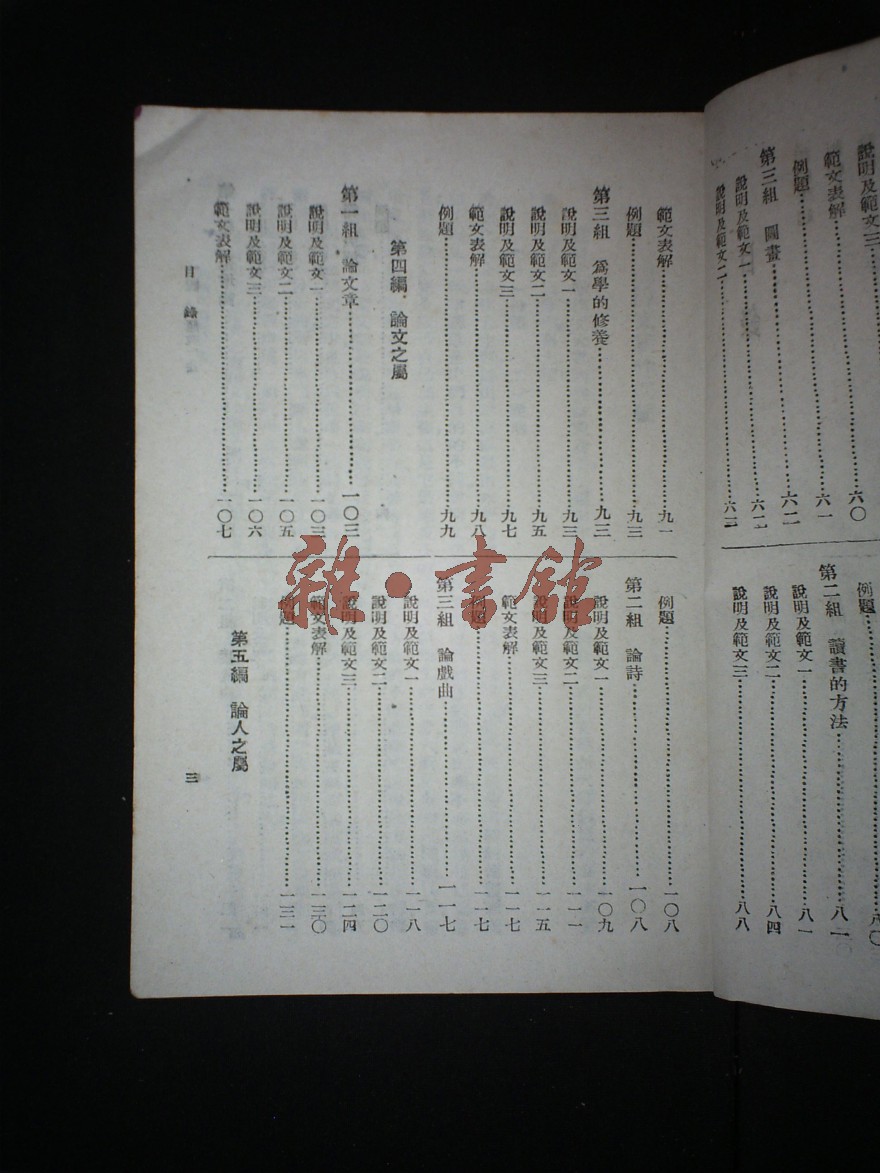 說明及範文三
範文表解……六〇
例題……六一
第三組　圖畫……六二
說明及範文一……六二
說明及範文二……六三
例題……八〇
第二組　讀書的方法……八一
說明及範文一……八一
說明及範文二……八四
說明及範文三……八八
範文表解……九一
例題……九三
第三組　爲學的修養……九三
說明及範文一……九三
說明及範文二……九五
說明及範文三……九七
範文表解……九八
例題……九九
第四編　論文之屬
第一組　論文章……一〇三
說明及範文一……一〇三
說明及範文二……一〇五
說明及範文三……一〇六
範文表解……一〇七
例題……一〇八
第二組　論詩……一〇八
說明及範文一……一〇九
說明及範文二……一一一
說明及範文三……一一五
範文表解……一一七
例題……一一七
第三組　論戲曲……一一七
說明及範文一……一一八
說明及範文二……一二〇
說明及範文三……一二四
範文表解……一三〇
例題……一三一
第五編　論人之屬
目錄
三
雜·書館